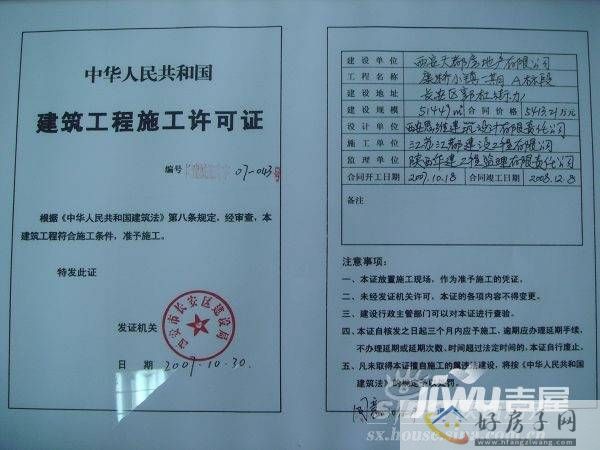 中华人民共和国
建筑工程施工许可证
编号 07-043号
根据《中华人民共和国建筑法》第八条规定，经审查，本
建筑工程符合施工条件，准予施工。
特发此证
西安市长安区建设局
发证机关
日 期 2007.10.30.
建设单位 西安天都房地产有限公司
工程名称 康桥小镇一期 A标段
建设地址 长安区郭杜街办
建设规模 51447㎡ 合同价格 5413.21万元
设计单位 建筑设计有限责任公司
施工单位 江苏江都建设工程有限公司
监理单位 陕西华建工程监理有限责任公司
合同开工日期 2007.10.18 合同竣工日期 2008.12.8
备注
注意事项：
一、本证放置施工现场，作为准予施工的凭证。
二、未经发证机关许可，本证的各项内容不得变更。
三、建设行政主管部门可以对本证进行查验。
四、本证自核发之日起三个月内应予施工，逾期应办理延期手续，
不办理延期或延期次数、时间超过法定时间的，本证自行废止。
五、凡未取得本证擅自施工的属违法建设，将按《中华人民共和国
建筑法》的规定予以处罚。
JIWU吉屋
sx.house.sina.com.cn
好房子网
www.hfangziwang.com